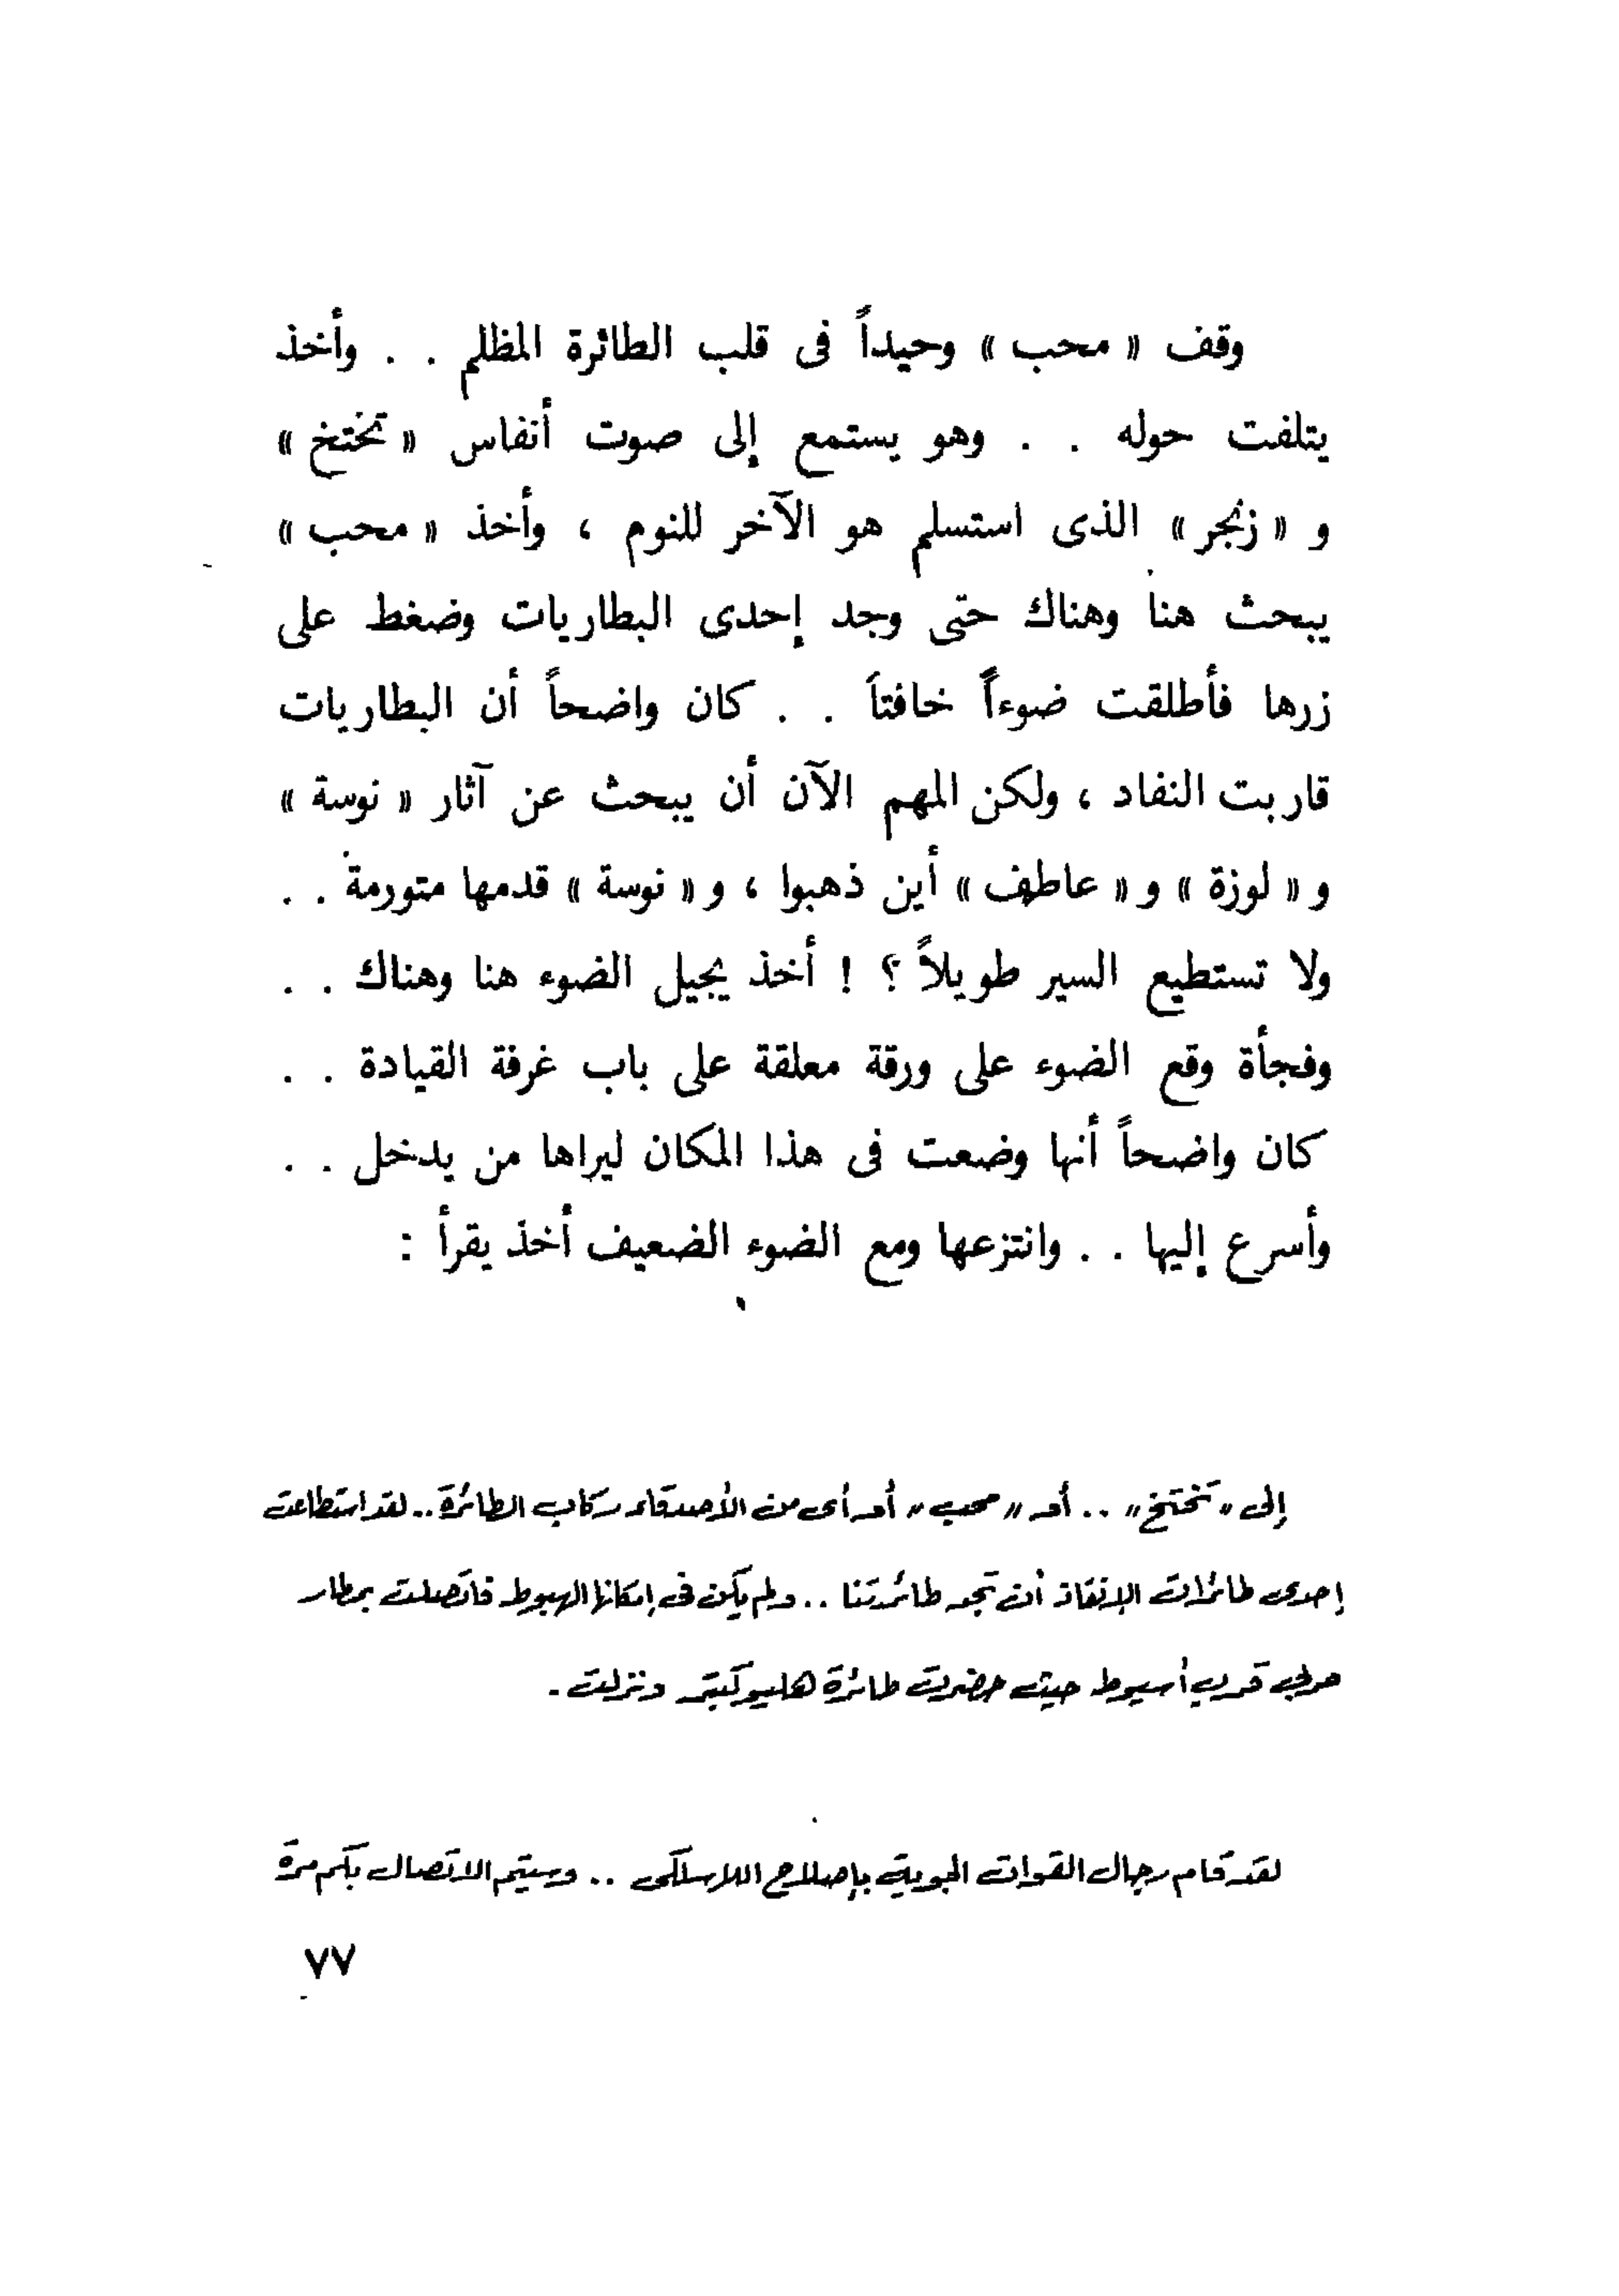 وقف « محب » وحيداً فى قلب الطائرة المظلم . . وأخذ
يتلفت حوله . . وهو يستمع إلى صوت أنفاس « تختخ »
و « زنجر » الذى استسلم هو الآخر للنوم ، وأخذ « محب »
يبحث هنا وهناك حتى وجد إحدى البطاريات وضغط على
زرها فأطلقت ضوءاً خافتاً . . كان واضحاً أن البطاريات
قاربت النفاد ، ولكن المهم الآن أن يبحث عن آثار « نوسة »
و « لوزة » و « عاطف » أين ذهبوا ، و « نوسة » قدمها متورمة . .
ولا تستطيع السير طويلاً ؟ ! أخذ يجيل الضوء هنا وهناك . .
وفجأة وقع الضوء على ورقة معلقة على باب غرفة القيادة . .
كان واضحاً أنها وضعت فى هذا المكان ليراها من يدخل . .
وأسرع إليها . . وانتزعها ومع الضوء الضعيف أخذ يقرأ :
إلى « تختخ » .. أو « محب » أو أى من الأصدقاء ركاب الطائرة .. لقد استطاعت
إحدى طائرات الإنقاذ أن تجد طائرتنا .. ولم يكن فى إمكانها الهبوط فاتصلت بمطار
حربى قرب أسيوط حيث حضرت طائرة هليوكبتر ونزلت .
لقد قام رجال القوات الجوية بإصلاح اللاسلكى .. وسيتم الاتصال بكم مرة
٧٧